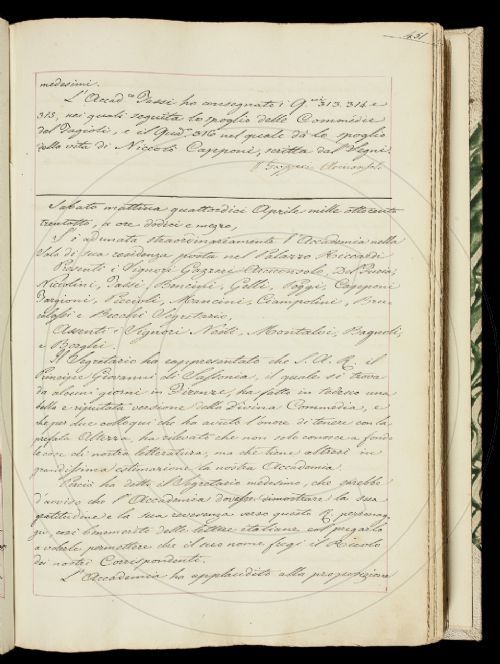 451
medesimi.
L'Accad.co Tassi ha consegnato i Q.ni 313. 314 e
315, nei quali seguita lo spoglio delle Commedie
del Fagioli, e il Quad.o 316 nel quale dà lo spoglio
della vita di Niccolò Capponi, scritta dal Segni.
Sabato mattina quattordici Aprile mille ottocento
trentotto, a ore dodici e mezzo,
S'è adunata straordinariamente l'Accademia nella
Sala di sua residenza posta nel Palazzo Riccardi
Presenti i Signori Gazzeri Arciconsolo, Del Furia,
Niccolini, Tassi, Bencini, Gelli, Poggi, Capponi
Targioni, Piccioli, Mancini, Ciampolini, Bru=
calassi e Becchi Segretario,
Assenti i Signori Nesti, Montalvi, Bagnoli,
e Borghi.
Il Segretario ha rappresentato che S. A. R. il
Principe Giovanni di Sassonia, il quale si trova
da alcuni giorni in Firenze, ha fatto in tedesco una
bella e riputata versione della Divina Commedia, e
che per due colloqui che ha avuto l'onore di tenere con la
prefata Altezza, ha rilevato che non solo conosce a fondo
le cose di nostra letteratura, ma che tiene altresì in
grandissima estimazione la nostra Accademia.
Perciò ha detto il Segretario medesimo, che sarebbe
d'avviso che l'Accademia dovesse dimostrare la sua
gratitudine e la sua reverenza verso questo R. personag=
gio, così benemerito delle lettere italiane col pregarlo
a volerle permettere che il suo nome fregi il Ruolo
dei nostri Corrispondenti.
L'Accademia ha applaudito alla proposizione